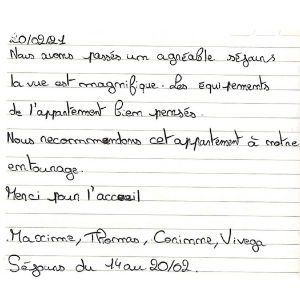 20/02/21
Nous avons passés un agréable séjours
la vue est magnifique. Les équipements
de l'appartement bien pensés.
Nous recommendons cet appartement à notre
entourage.
Merci pour l'acceuil
Maxime, Thomas, Corinne, Vivega
Séjours du 14 au 20/02.